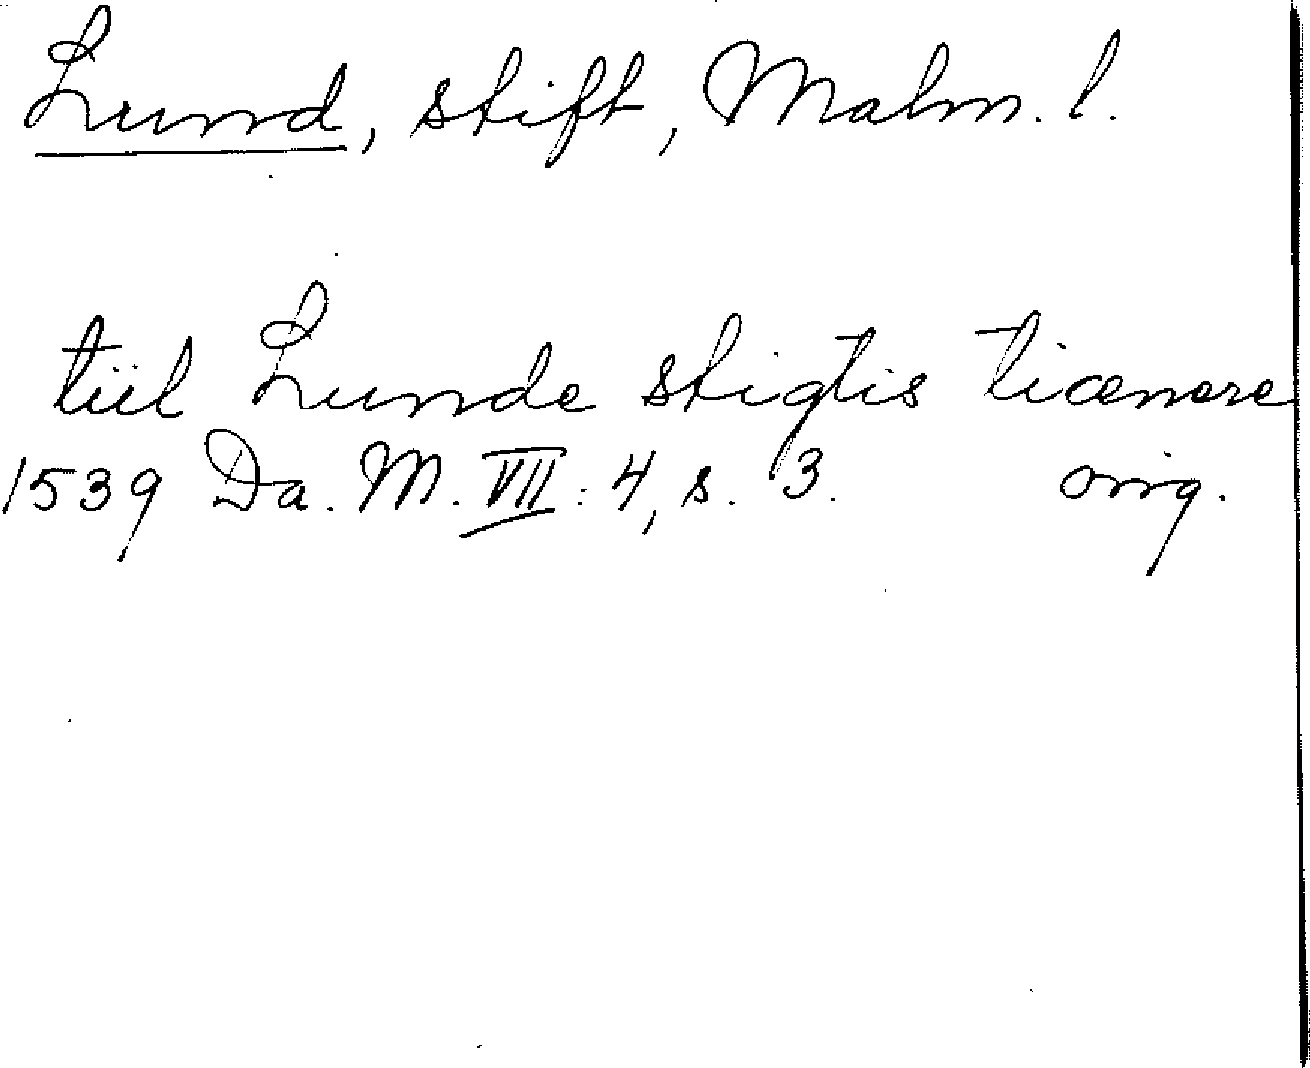 Lund, stift, Malm. l.
tiil Lunde stigtis tiænere
1539 Da. M. VII: 4, s. 3. orig.